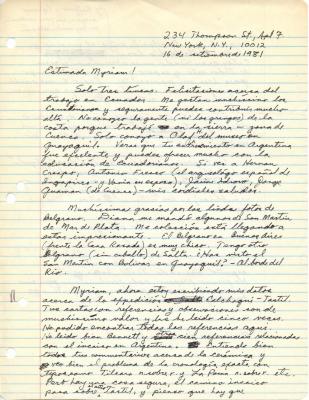 234 Thompson St, Apt 7
New York, N.Y., 10012
16 de setiembre de 1981
Estimada Myriam!
Solo tres líneas. Felicitaciones acerca del
trabajo en Ecuador. Me gustan muchísimo los
Ecuatorianos y seguramente puedes contribuir mucho
allá. No conozco la gente (ni los gringos) de la
costa porque trabajé en la sierra - zona de
Cuenca. Solo conozco a Olaf del museo en
Guayaquil. Veras que tu entrenamiento en Argentina
fue excelente y puedes ofrecer mucho con la
educación de Ecuatorianos. Si ves a Hernan
Crespo, Antonio Fresco (el arqueólogo español de
y María su esposa),
Guaman (de Cuenca) - mis cordiales saludos.
Muchísimas gracias por las lindas fotos de
Belgrano. Diana me mandó algunos de San Martín
de Mar de Plata. Me colección está llegando a
estar impresionante. El Belgrano en Buenos Aires
(frente la Casa Rosada) es muy chico. Tengo otro
Belgrano (sin caballo) de Salta. ¿Has visto el
San Martín con Bolívar en Guayaquil? - Al bordo del
Río.
Myriam, ahora estoy escribiendo mis datos
acerca de la expedición Calchaquí - Tastil.
Tus cartas con referencias y observaciones son de
muchísimo valor y los he leído cinco veces.
No pudido encontrar todas las referencias aquí.
He leído bien Bennett y otras cien referencias relacionadas
con el incaico en Argentina. Entiendo bien
todos tus comentarios acerca de la cerámica y
veo bien el problema de cronología exacta con
Tilcara n. sobre r. y La Paya n. sobre r. etc.
Pero hay una cosa segura, el camino incaico
pasa sobre Tastil, y pienso que hay que